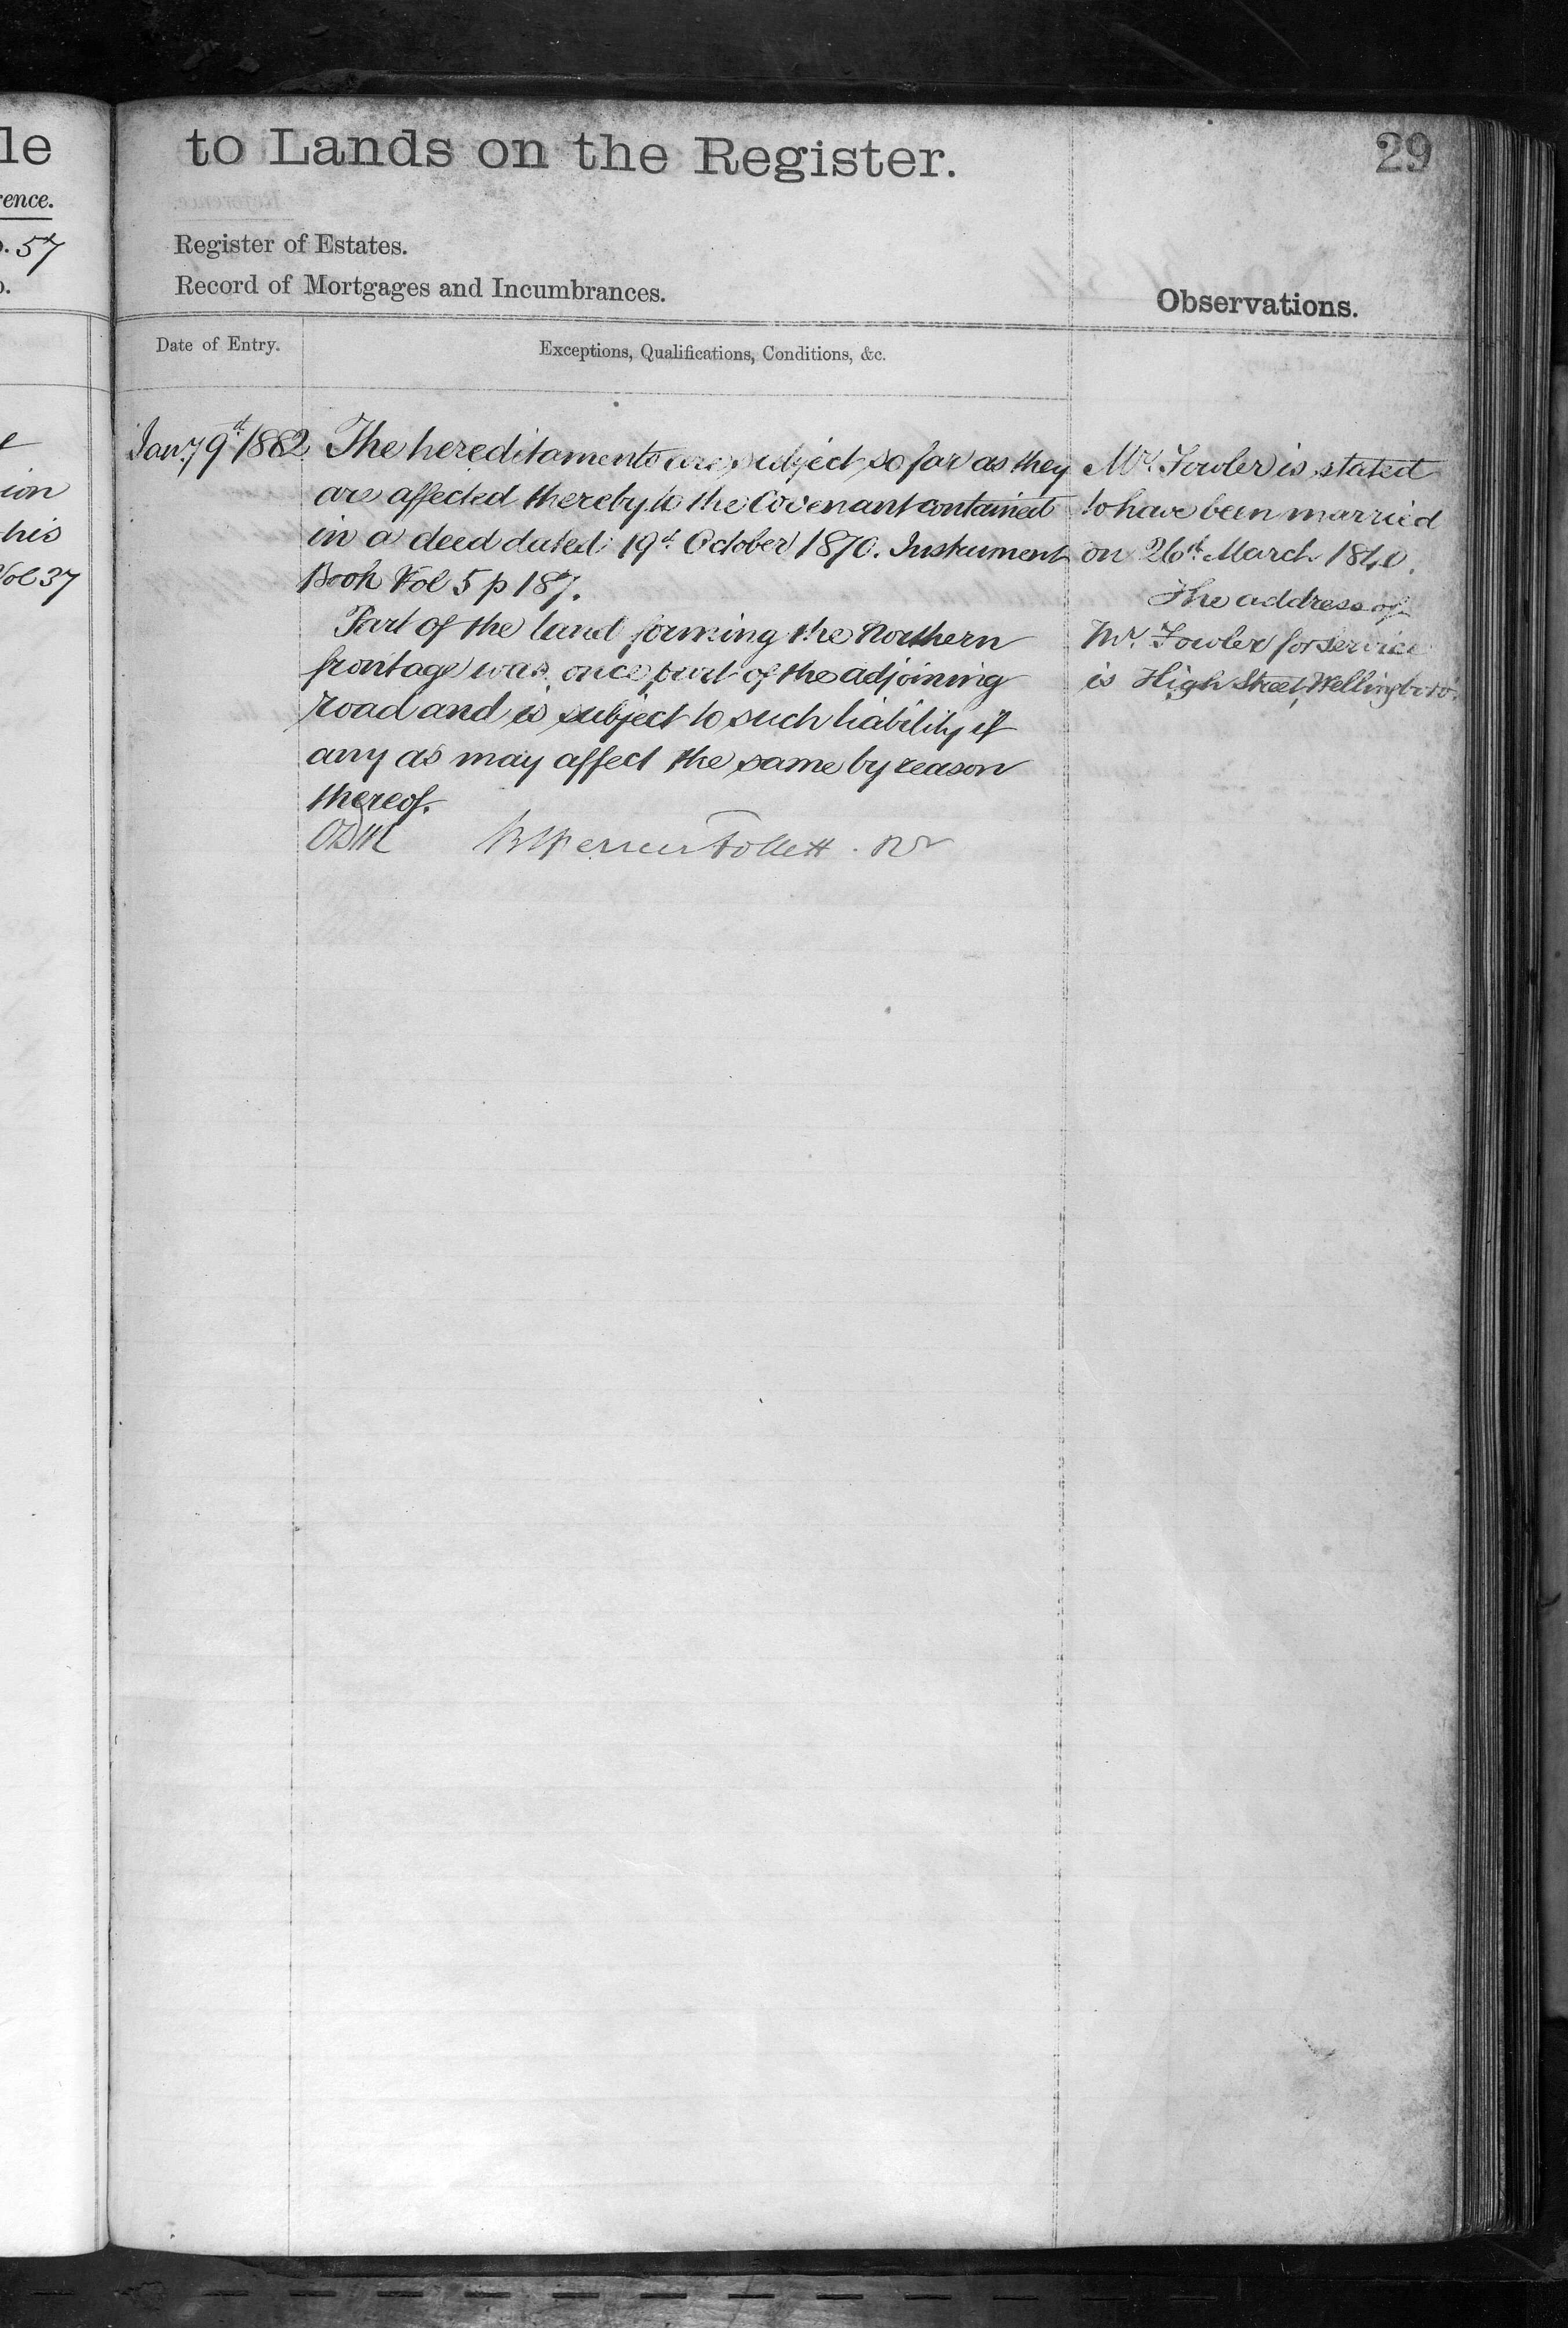 le
rence.
o. 57
o.
ion
his
Vol 37
to Lands on the Register.
29
Register of Estates.
Record of Mortgages and Incumbrances.
Observations.
Date of Entry.
Exceptions, Qualifications, Conditions, &c.
Jany 9th 1882
The hereditaments are subject so far as they
are affected thereby to the Covenant contained
in a deed dated 19th October 1870. Instrument
Book Vol 5 p 187.
Part of the land forming the Northern
frontage was once part of the adjoining
road and is subject to such liability if
any as may affect the same by reason
thereof.
Follett
Mr. Fowler is stated
to have been married
on 26th March 1840.
The address of
Mr. Fowler for service
is High Street, Wellingboro'.